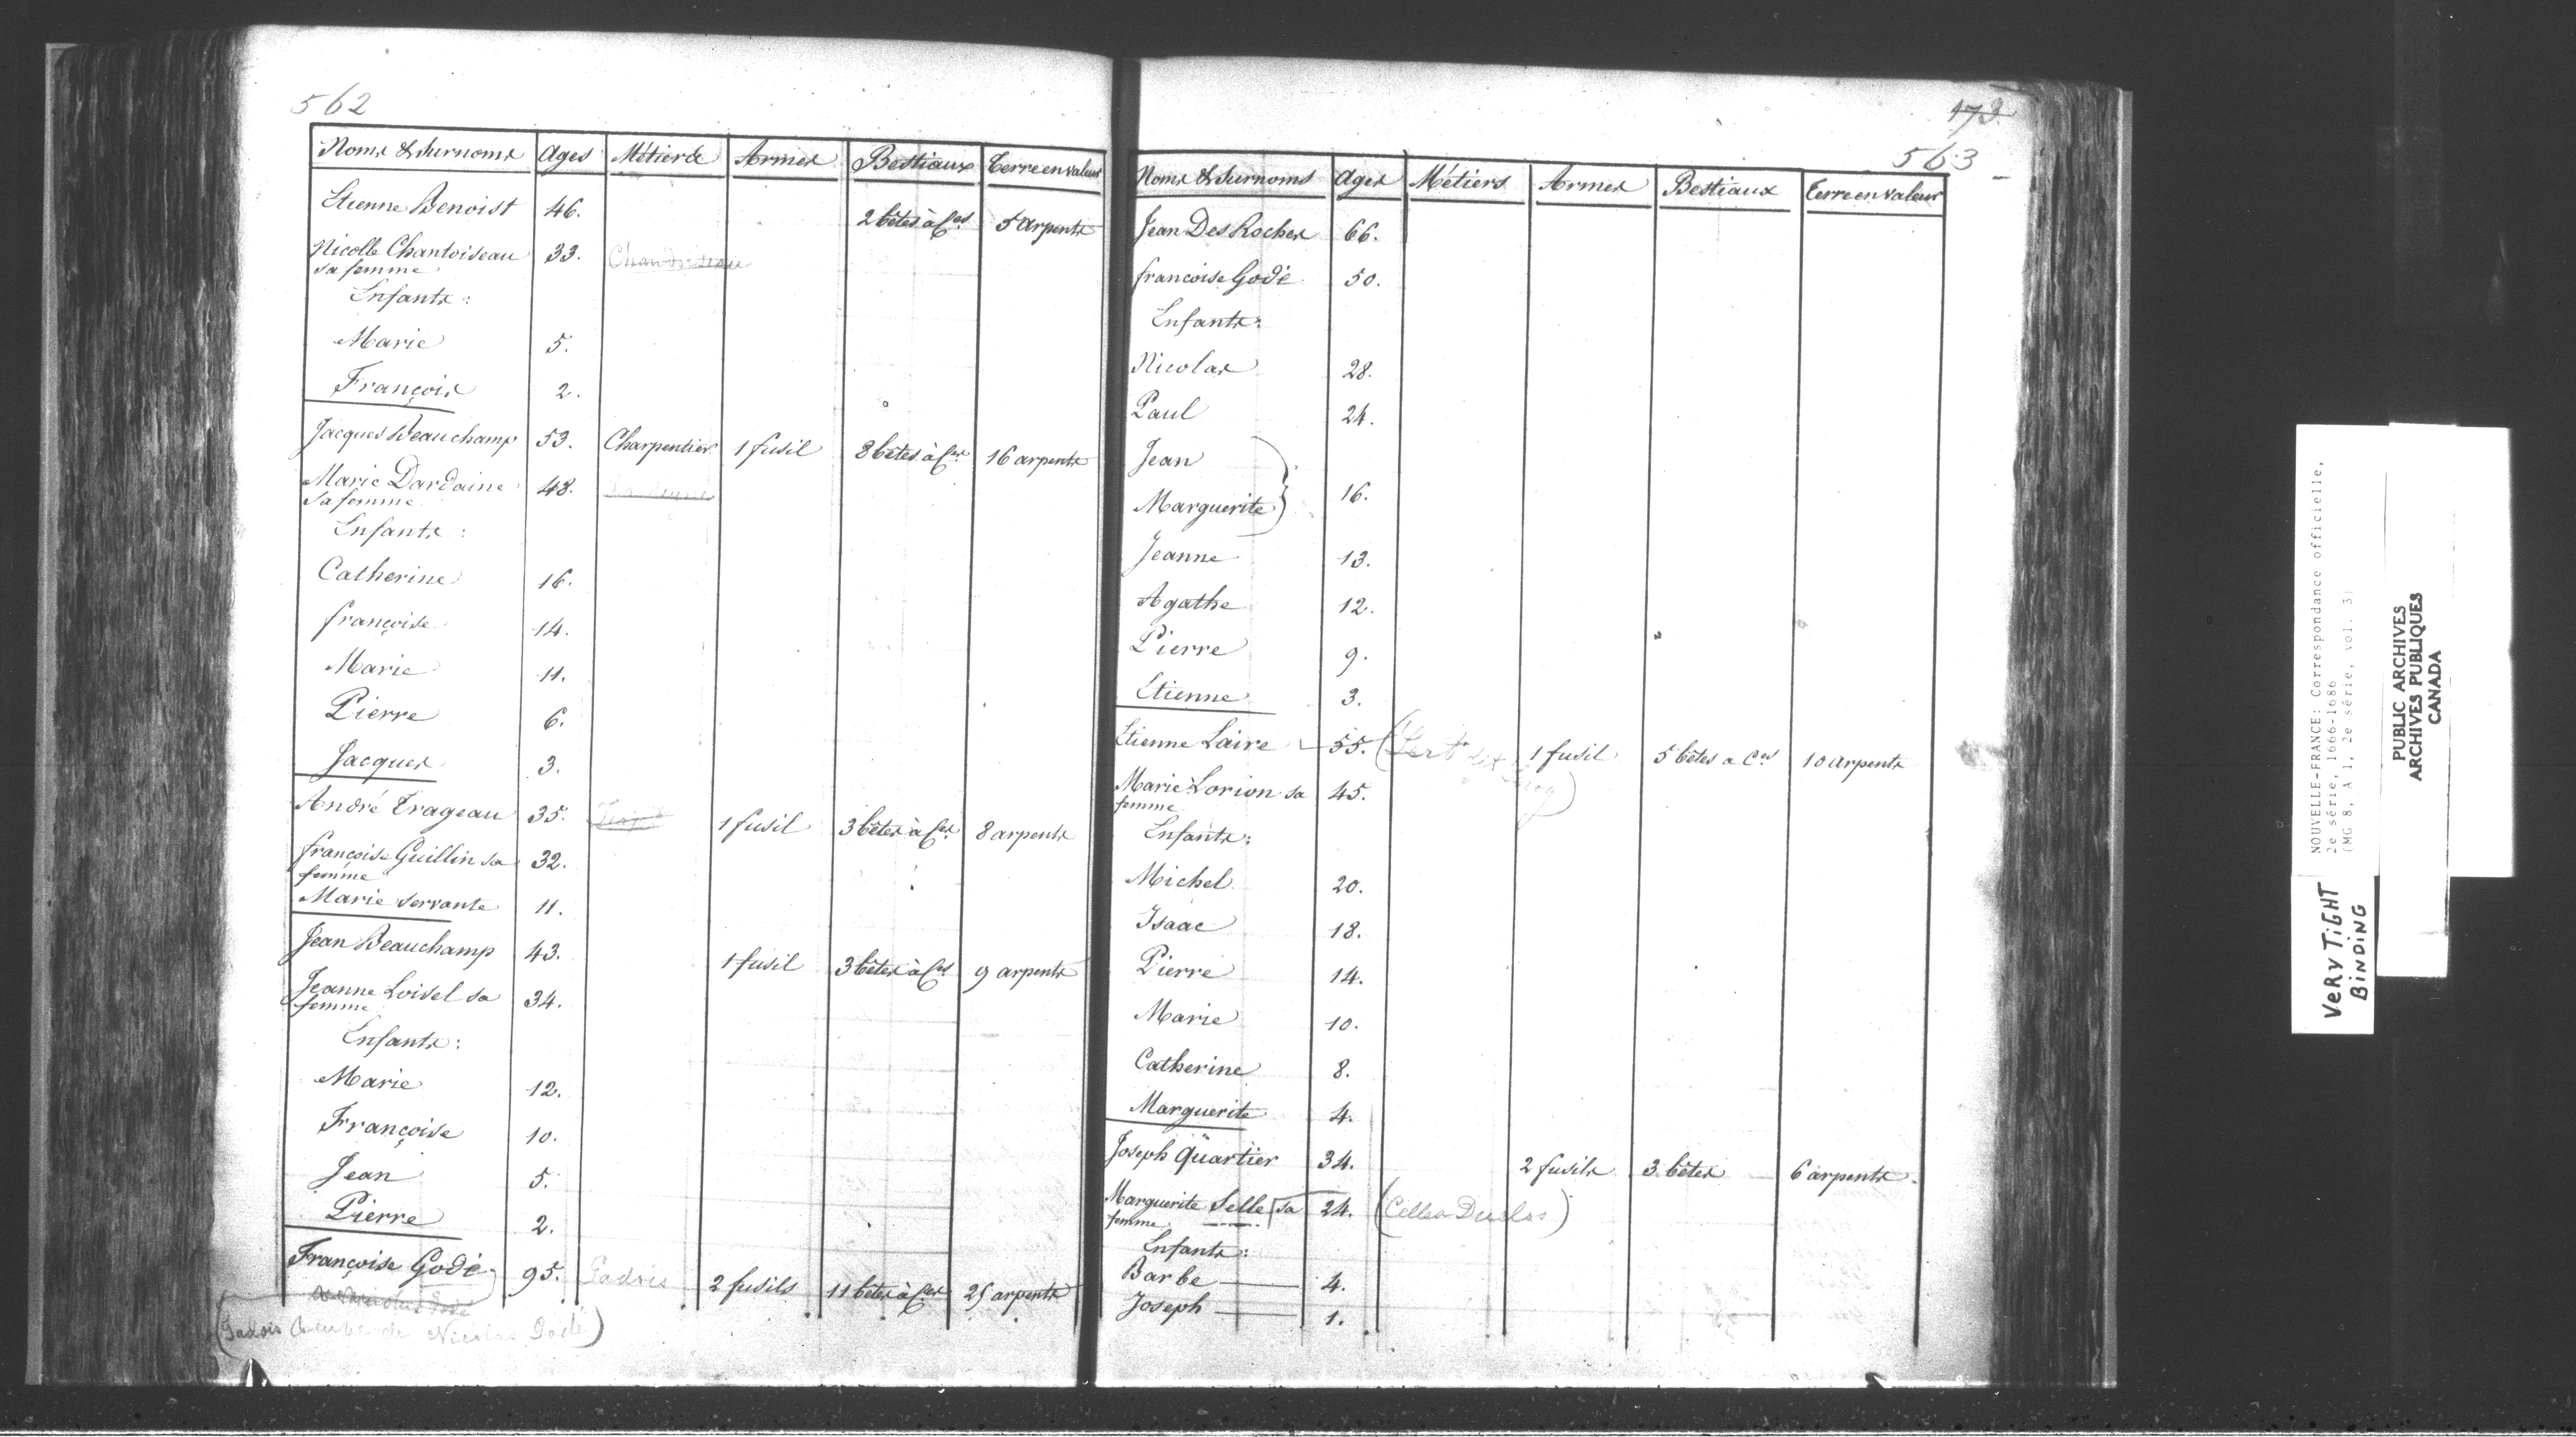 562
Noms & Surnoms Ages Métiers Armes Bestiaux Terre en valeur
Etienne Benoist 46. 2 bêtes à Ces 5 Arpents
Nicolle Chantoiseau 33.
sa femme
Enfants:
Marie 5.
François 2.
Jacques Beauchamp 53. Charpentier 1 fusil 8 bêtes à Ces 16 arpents
Marie Dardaine 48.
sa femme
Enfants:
Catherine 16.
françoise 14.
Marie 11.
Pierre 6.
Jacques 3.
André Trageau 35. 1 fusil 3 bêtes à Ces 8 arpents
françoise Guillin sa 32.
femme
Marie servante 11.
Jean Beauchamp 43. 1 fusil 3 bêtes à Ces 9 arpents
Jeanne Loisel sa 34.
femme
Enfants:
Marie 12.
Françoise 10.
Jean 5.
Pierre 2.
Françoise Godé 95. Gadois 2 fusils 11 bêtes à Ces 25 arpents
(Gadois de Nicolas Godé)
173
563
Noms & Surnoms Ages Métiers Armes Bestiaux Terre en valeur
Jean Des Roches 66.
francoise Godé 50.
Enfants:
Nicolas 28.
Paul 24.
Jean
Marguerite } 16.
Jeanne 13.
Agathe 12.
Pierre 9.
Etienne 3.
Etienne Laire 55. 1 fusil 5 bêtes a Ces 10 arpents
Marie Lorion sa 45.
femme
Enfants:
Michel 20.
Isaac 18.
Pierre 14.
Marie 10.
Catherine 8.
Marguerite 4.
Joseph Quartier 34. 2 fusils 3 bêtes 6 arpents
Marguerite Selle sa 24. (Celles Duclos)
femme
Enfants:
Barbe 4.
Joseph 1.
NOUVELLE-FRANCE: Correspondance officielle,
2e série, 1666-1686
(MG 8, A 1, 2e série, vol. 3)
VERY TIGHT
BINDING
PUBLIC ARCHIVES
ARCHIVES PUBLIQUES
CANADA